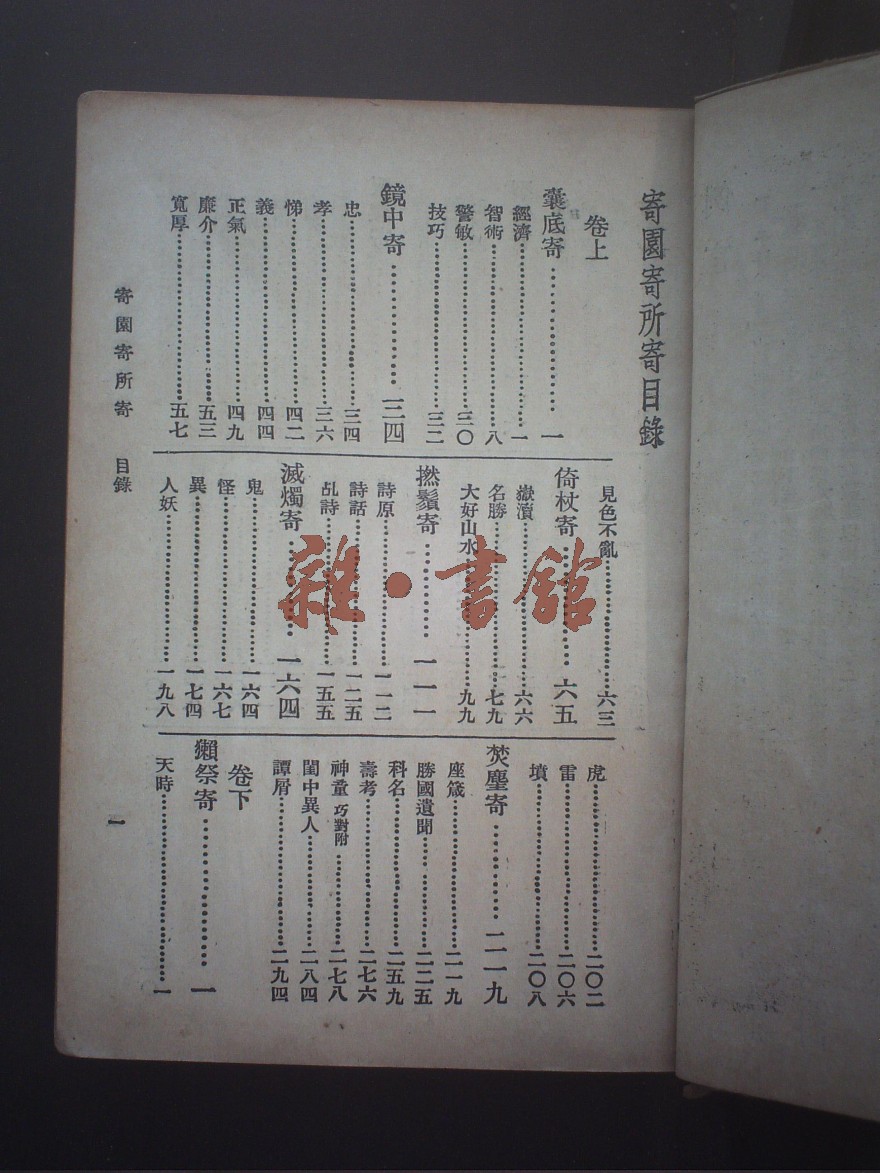 寄園寄所寄目錄
卷上
囊底寄…………………一
經濟…………………一
智術…………………八
警敏…………………三〇
技巧…………………三二
鏡中寄…………………三四
忠…………………三四
孝…………………三六
悌…………………四二
義…………………四四
正氣…………………四九
廉介…………………五三
寬厚…………………五七
見色不亂…………………六三
倚杖寄…………………六五
嶽瀆…………………六六
名勝…………………七九
大好山水…………………九九
撚鬚寄…………………一一一
詩原…………………一一二
詩話…………………一二五
乩詩…………………一五五
滅燭寄…………………一六四
鬼…………………一六四
怪…………………一六七
異…………………一七四
人妖…………………一九八
虎…………………二〇二
雷…………………二〇六
墳…………………二〇八
焚麈寄…………………二一九
座箴…………………二一九
勝國遺聞…………………二二五
科名…………………二五九
壽考…………………二七六
神童 巧對附…………………二七八
閨中異人…………………二八四
譚屑…………………二九四
卷下
獺祭寄…………………一
天時…………………一
寄園寄所寄 目錄
一
雜·書館